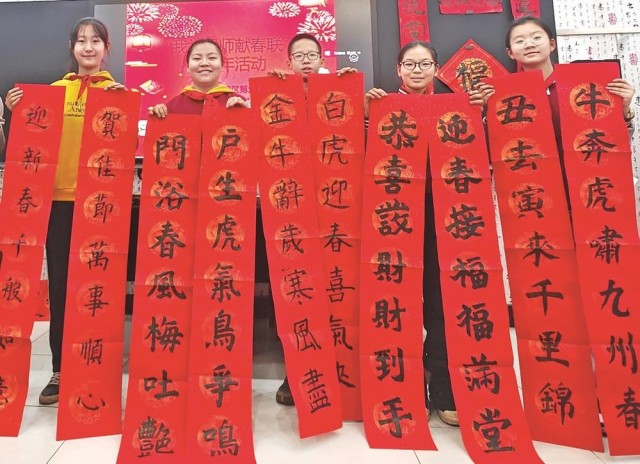 师献春联
活动
福
迎新春千般如意
賀佳節萬事順心
門浴春風梅吐艷
户生虎氣鳥爭鳴
金牛辭歲寒風盡
白虎迎春喜氣
恭喜發財財到手
迎春接福福滿堂
丑去寅來千里錦
牛奔虎嘯九州春